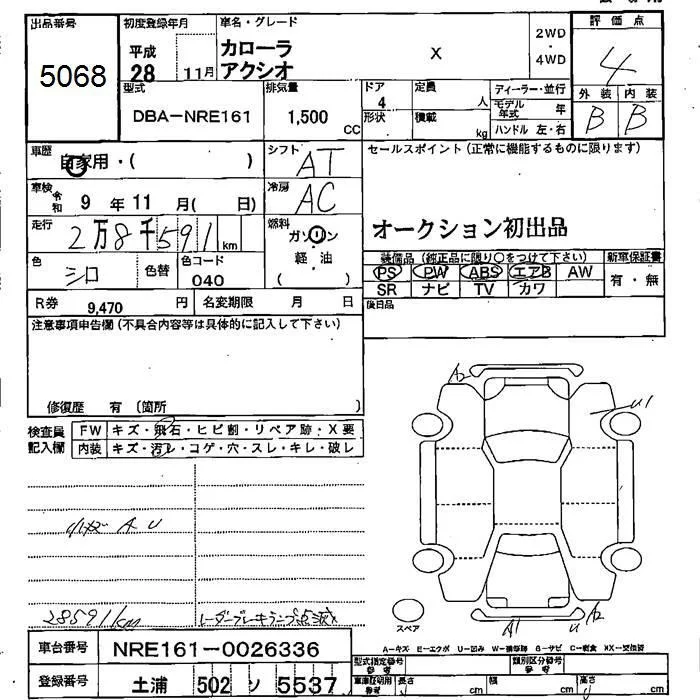 出品番号 初度登録年月 車名・グレード 評価点
5068
平成 カローラ X 2WD
28 11月 アクシオ 4WD
4
型式 排気量 ドア 定員 ディーラー・並行 外装 内装
DBA-NRE161 1,500 CC 4 人 モデル年式 年 B B
形状 積載 kg ハンドル 左・右
車歴 自家用・( ) シフト AT セールスポイント(正常に機能するものに限ります)
車検 令和 9年 11月( 日) 冷房 AC
オークション初出品
走行 2万8千591km 燃料 ガソリン
軽・油
( )
色 シロ 色替 色コード 040
装備品(純正品に限り○をつけて下さい) 新車保証書
PS PW ABS エアB AW 有・無
SR ナビ TV カワ
R券 9,470 円 名変期限 月 日 後日品
注意事項申告欄(不具合内容等は具体的に記入して下さい)
修復歴 有 (箇所 )
検査員 FW キズ・飛石・ヒビ割・リペア跡・X要
記入欄 内装 キズ・汚レ・コゲ・穴・スレ・キレ・破レ
A2
U1
小キズ A U
28591km レーダーブレーキランプ点滅
スペア A1 U A2
A-キズ E-エクボ U-凹み W-補修跡 S-サビ C-腐食 XX-交換済
車台番号 NRE161-0026336
登録番号 土浦 502 ソ 5537
型式指定番号 参考 類別区分番号 参考
車庫証明用 参考 長さ cm 幅 cm 高さ cm